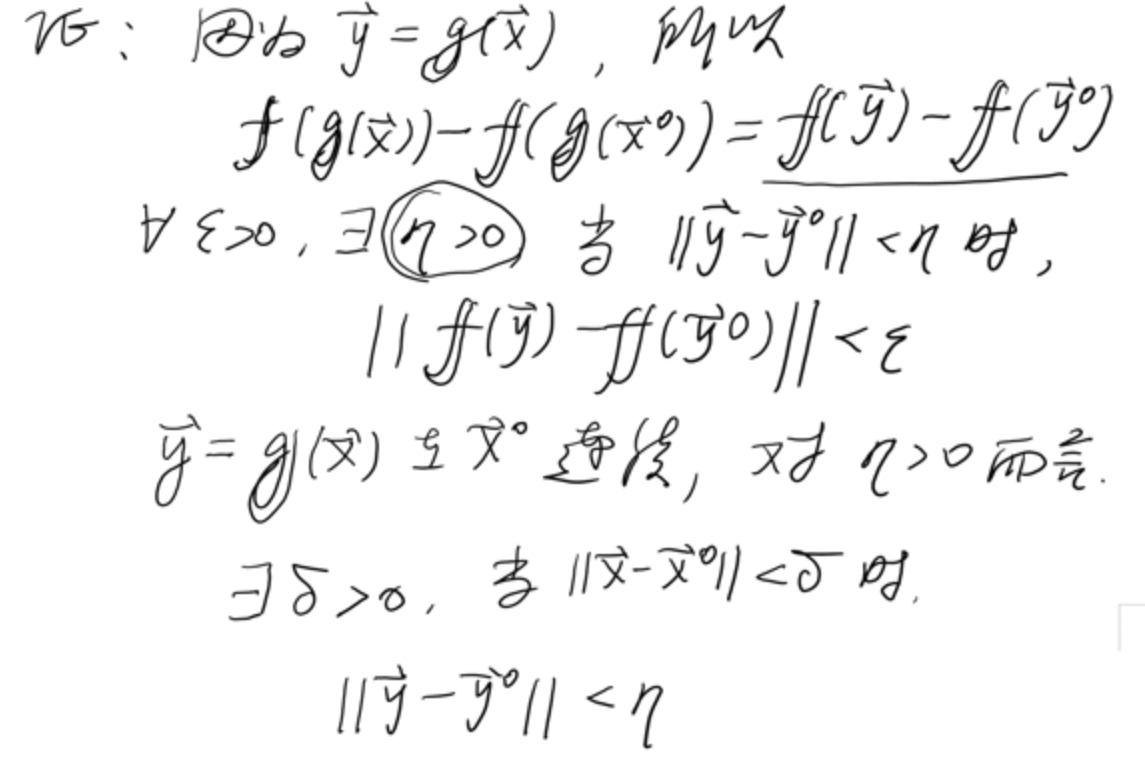 证: 因为 $\vec{y} = g(\vec{x})$, 所以
$f(g(\vec{x})) - f(g(\vec{x}^0)) = f(\vec{y}) - f(\vec{y}^0)$
$\forall \varepsilon > 0, \exists \eta > 0$ 当 $\|\vec{y} - \vec{y}^0\| < \eta$ 时,
$\|f(\vec{y}) - f(\vec{y}^0)\| < \varepsilon$
$\vec{y} = g(\vec{x})$ 在 $\vec{x}^0$ 连续, 对于 $\eta > 0$ 而言.
$\exists \delta > 0$, 当 $\|\vec{x} - \vec{x}^0\| < \delta$ 时,
$\|\vec{y} - \vec{y}^0\| < \eta$